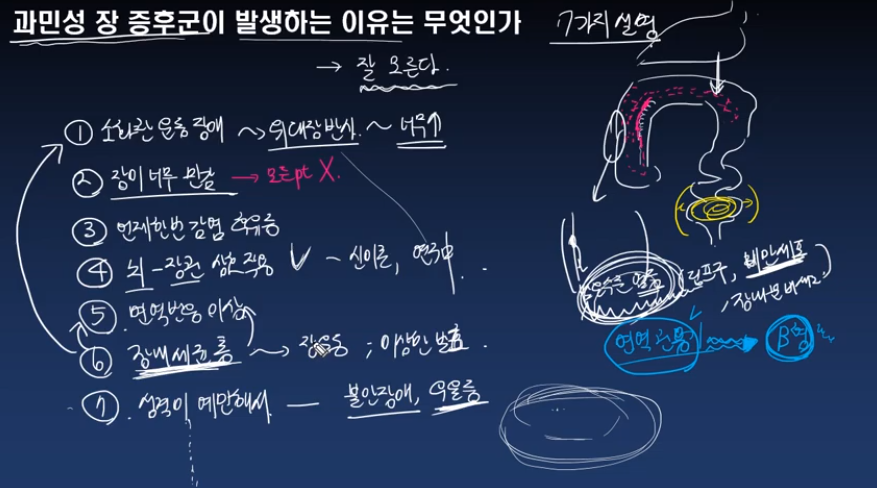 과민성 장 증후군이 발생하는 이유는 무엇인가
7가지 설명
→ 잘 모른다.
① 소화관 운동 장애 ~ 위대장반사 ~ 너무↑
② 장이 너무 민감 → 모든pt X.
③ 언제한번 감염 후유증
④ 뇌 - 장관 상호작용 ~ 신이론, 연구中
⑤ 면역반응 이상
⑥ 장내세균총 ~> 장운동 ; 이상한 발효.
⑦ 성격이 예민해서 — 불안장애, 우울증
낮은수준 염증 (림프구, 비만세포, 장내분비세포)
면역관용